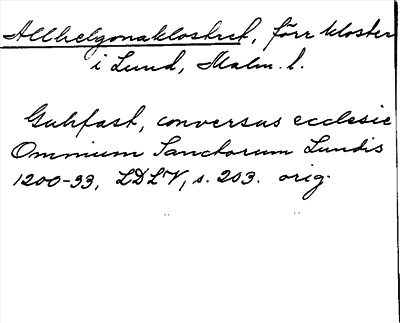 Allhelgonaklostret, förr kloster
i Lund, Malm. l.
Guhfast, conversus ecclesie
Omnium Sanctorum Lundis
1200-33, LDLV, s. 203. orig.